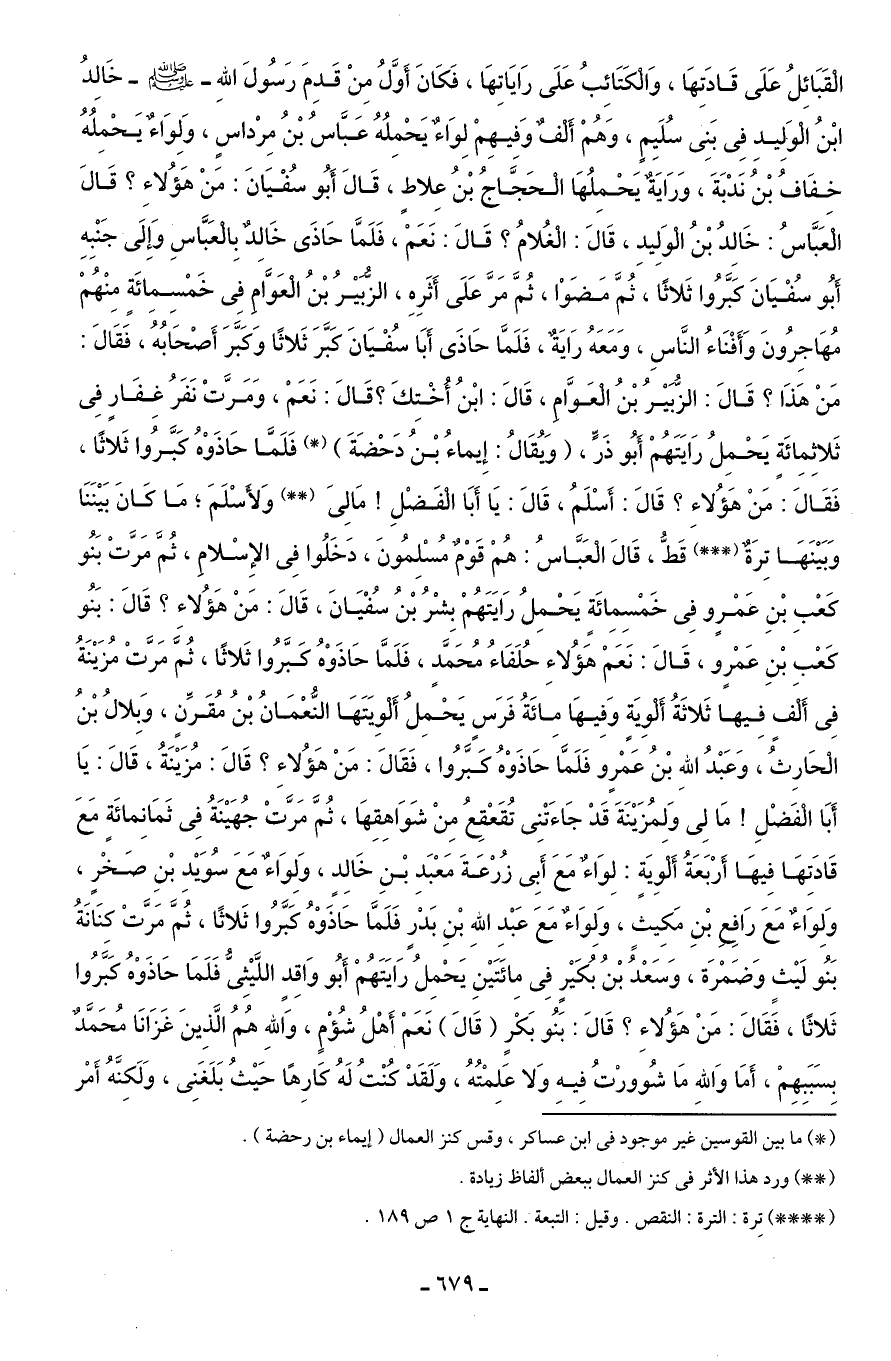 الْقَبَائِلُ عَلَى قَـادَتِهَا ، وَالْكَتَائِبُ عَلَى رَايَاتِهَا ، فَكَانَ أَوَّلُ مِنْ قَدِمَ رَسُولَ اللهِ ـ ﷺ ـ خَالِدُ
ابْنُ الْوَلِيـدِ فِى بَنِى سُلَيِمٍ ، وَهُمْ أَلْفٌ وَفِيـهِمْ لِوَاءٌ يَحْمِلُهُ عَبَّاسُ بْنُ مِرْدَاسٍ ، وَلِوَاءٌ يَـحْمِلُهُ
خِـفَافُ بْنُ نَدْبَةَ ، وَرَايَةٌ يَحْـمِلُهَا الْـحَجَّاجُ بْنُ عِلاَطٍ ، قَـالَ أَبُو سُفْيَانَ : مَنْ هَؤُلاءِ ؟ قَـالَ
الْعَبَّاسُ : خَالِدُ بْنُ الْوَلِيدِ ، قَالَ : الْغُلاَمُ ؟ قَـالَ : نَعَمْ ، فَلَمَّا حَاذَى خَالِدٌ بِالْعَبَّاسِ وَإِلَى جَنْبِهِ
أَبُو سُفْيَانَ كَبَّرُوا ثَلاَثًا ، ثُمَّ مَـضَوْا ، ثُمَّ مَرَّ عَلَى أَثَرِهِ ، الزُّبَيْرُ بْنُ الْعَوَّامِ فِى خَمْسِـمِائَةٍ مِنْهُمْ
مُهَاجِرُونَ وَأَفْنَاءُ النَّاسِ ، وَمَعَهُ رَايَةٌ ، فَلَمَّا حَاذَى أَبَا سُفْيَانَ كَبَّرَ ثَلاَثًا وَكَبَّرَ أَصْحَابُهُ ، فَقَالَ :
مَنْ هَذَا ؟ قَـالَ : الزُّبَيْـرُ بْنُ الْعَـوَّامِ ، قَالَ : ابْنُ أُخْـتِكَ ؟ قَـالَ : نَعَمْ ، وَمَـرَّتْ نَفَرُ غِـفَارٍ فِى
ثَلاثِمِائَةٍ يَحْـمِلُ رَايَتَهُمْ أَبُو ذَرٍّ ، ( وَيُقَالُ : إِيمَاءُ بْـنُ دَحْضَةَ ) (*) فَلَمَّا حَاذَوْهُ كَبَّـرُوا ثَلاَثًا ،
فَقَـالَ : مَنْ هَؤُلاَءِ ؟ قَالَ : أَسْلَمُ ، قَالَ : يَا أَبَا الْفَـضْلِ ! مَالِىَ (**) وَلأَسْلَمَ ؛ مَـا كَـانَ بَيْنَنَا
وَبَيْنَهَـا تِرَةٌ (***) قَطُّ ، قَالَ الْعَبَّاسُ : هُمْ قَوْمٌ مُسْلِمُونَ ، دَخَلُوا فِى الإِسْلاَمِ ، ثُمَّ مَرَّتْ بَنُو
كَعْبِ بْنِ عَمْـرٍو فِى خَمْسِمِائَةٍ يَحْـمِلُ رَايَتَهُمْ بِشْرُ بْنُ سُفْيَـانَ ، قَالَ : مَنْ هَؤُلاَءِ ؟ قَالَ : بَنُو
كَعْبِ بْنِ عَمْرٍو ، قَـالَ : نَعَمْ هَؤُلاَءِ حُلَفَاءُ مُحَمَّدٍ ، فَلَمَّا حَاذَوْهُ كَـبَّرُوا ثَلاَثًا ، ثُمَّ مَرَّتْ مُزَيْنَةُ
فِى أَلْفٍ فِـيهَـا ثَلاَثَةُ أَلْوِيَةٍ وَفِيـهَا مِـائَةُ فَرَسٍ يَحْـمِلُ أَلْوِيَتَهَـا النُّعْمَـانُ بْنُ مُقَرِّنٍ ، وَبِلاَلُ بْنُ
الْحَارِثُ ، وَعَبْدُ اللهِ بْنُ عَمْرٍو فَلَمَّا حَاذَوْهُ كَـبَّرُوا ، فَقَالَ : مَنْ هَؤُلاَءِ ؟ قَالَ : مُزَيْنَةُ ، قَالَ : يَا
أَبَا الْفَضْلِ ! مَا لِى وَلِمُزَيْنَةَ قَدْ جَاءَتْنِى تُقَعْقِعُ مِنْ شَوَاهِقِهَا ، ثُمَّ مَرَّتْ جُهَيْنَةُ فِى ثَمَانِمائَةٍ مَعَ
قَادَتِهَـا فِيهَـا أَرْبَعَةُ أَلْوِيَةٍ : لِوَاءٌ مَعَ أَبِى زُرْعَـةَ مَعْبَدِ بْـنِ خَالِدٍ ، وَلِوَاءٌ مَعَ سُوَيْدِ بْنِ صَـخْرٍ ،
وَلِوَاءٌ مَعَ رَافِعِ بْنِ مَكِيثٍ ، وَلِوَاءٌ مَعَ عَبْدِ اللهِ بْنِ بَدْرٍ فَلَمَّا حَاذَوْهُ كَبَّرُوا ثَلاَثًا ، ثُمَّ مَرَّتْ كِنَانَةُ
بَنُو لَيْثٍ وَضَمْرَةَ ، وَسَعْدُ بْنُ بُكَيْرٍ فِى مِائَتَيْنِ يَحْمِلُ رَايَتَهُمْ أَبُو وَاقِدٍ اللَّيْثِىُّ فَلَمَا حَاذَوْهُ كَبَّرُوا
ثَلاَثًا ، فَقَالَ : مَنْ هَؤُلاَءِ ؟ قَالَ : بَنُو بَكْرٍ ( قَالَ ) نَعَمْ أَهْلُ شُؤْمٍ ، وَاللهِ هُمُ الَّذِينَ غَزَانَا مُحَمَّدٌ
بِسَبَبِهِمْ ، أَمَا وَاللهِ مَا شُوورْتُ فِيـهِ وَلاَ عَلِمْتُهُ ، وَلَقَدْ كُنْتُ لَهُ كَارِهًا حَيْثُ بَلَغَنِى ، وَلَكِنَّهُ أَمْر
(*) ما بين القوسين غير موجود فى ابن عساكر ، وقس كنز العمال ( إيماء بن رحضة ) .
(**) ورد هذا الأثر فى كنز العمال ببعض ألفاظ زيادة .
(****) تِرة : الترة : النقص . وقيل : التبعة . النهاية ج ١ ص ١٨٩ .
ـ ٦٧٩ ـ